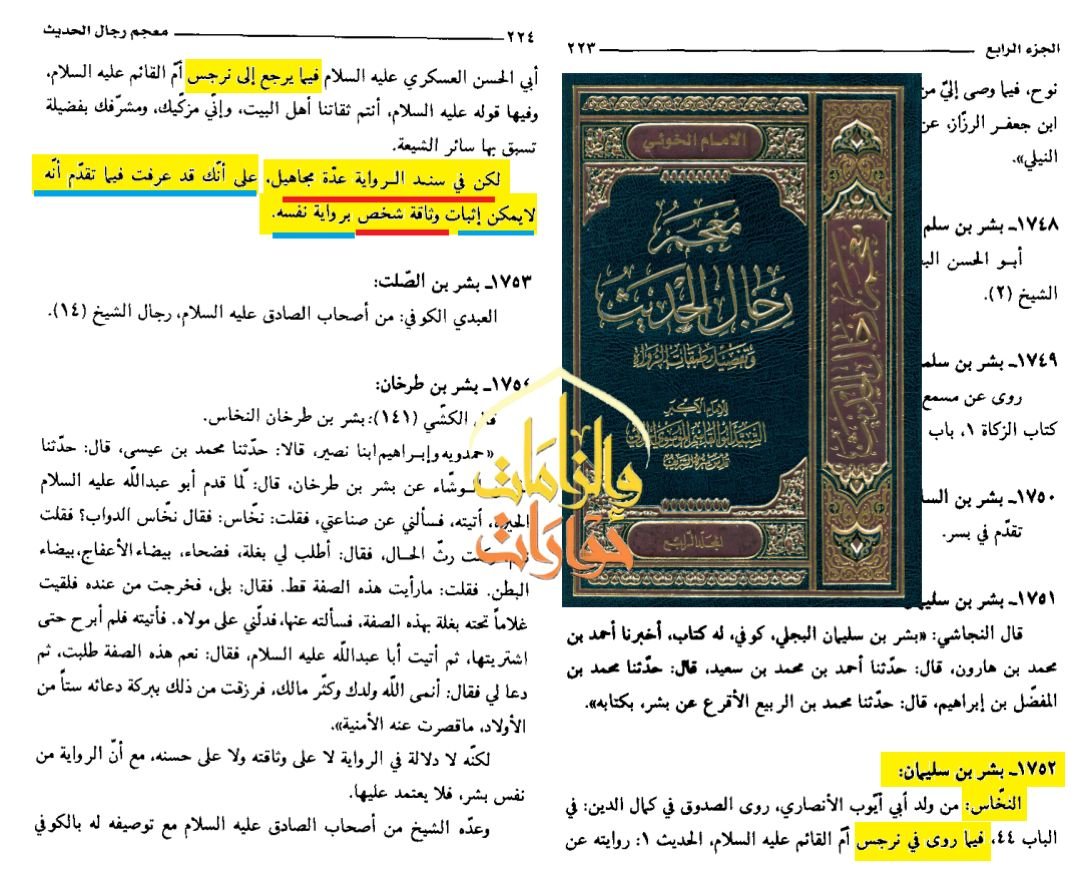 الجزء الرابع ٢٢٣
نوح، فيما وصى إليّ من
ابن جعفر الرزّاز، عن
النيلي».
١٧٤٨ـ بشر بن سلم
أبو الحسن
الشيخ (٢).
١٧٤٩ـ بشر بن سلمة
روى عن مسمع
كتاب الزكاة ١، باب
١٧٥٠ـ بشر بن
تقدّم في بسر.
١٧٥١ـ بشر بن سليمان
قال النجاشي: «بشر بن سليمان البجلي، كوفي، له كتاب، أخبرنا أحمد بن
محمد بن هارون، قال: حدّثنا أحمد بن محمد بن سعيد، قال: حدّثنا محمد بن
المفضّل بن إبراهيم، قال: حدّثنا محمد بن الربيع الأقرع عن بشر، بكتابه».
١٧٥٢ـ بشر بن سليمان:
النخّاس: من ولد أبي أيّوب الأنصاري، روى الصدوق في كمال الدين: في
الباب ٤٤، فيما روى في نرجس أمّ القائم عليه السلام، الحديث ١: روايته عن
الإمام الخوئي
معجم
رجال الحديث
وتفصيل طبقات الرواة
للإمام الأكبر
السيد أبو القاسم الموسوي الخوئي
قدس سره الشريف
المجلد الرابع
معجم رجال الحديث
٧
٧
حوارات
وإلزامات
٢٢٤ معجم رجال الحديث
أبي الحسن العسكري عليه السلام فيما يرجع إلى نرجس أمّ القائم عليه السلام،
وفيها قوله عليه السلام، أنتم ثقاتنا أهل البيت، وإنّي مزكّيك، ومشرّفك بفضيلة
تسبق بها سائر الشيعة.
لكن في سند الرواية عدّة مجاهيل، على أنّك قد عرفت فيما تقدّم أنّه
لايمكن إثبات وثاقة شخص برواية نفسه.
١٧٥٣ـ بشر بن الصّلت:
العبدي الكوفي: من أصحاب الصادق عليه السلام، رجال الشيخ (١٤).
١٧٥٤ـ بشر بن طرخان:
قال الكشّي (١٤١): بشر بن طرخان النخاس.
«حمدويه وإبراهيم ابنا نصير، قالا: حدّثنا محمد بن عيسى، قال: حدّثنا
الوشّاء عن بشر بن طرخان، قال: لمّا قدم أبو عبدالله عليه السلام
الحيرة، أتيته، فسألني عن صناعتي، فقلت: نخّاس: فقال نخّاس الدواب؟ فقلت
رثّ الحال، فقال: أطلب لي بغلة، فضحاء، بيضاء الأعفاج، بيضاء
البطن. فقلت: مارأيت هذه الصفة قط. فقال: بلى، فخرجت من عنده فلقيت
غلاماً تحته بغلة بهذه الصفة، فسألته عنها، فدلّني على مولاه. فأتيته فلم أبرح حتى
اشتريتها، ثم أتيت أبا عبدالله عليه السلام، فقال: نعم هذه الصفة طلبت، ثم
دعا لي فقال: أنمى الله ولدك وكثّر مالك، فرزقت من ذلك ببركة دعائه ستاً من
الأولاد، ماقصرت عنه الأمنية».
لكنّه لا دلالة في الرواية لا على وثاقته ولا على حسنه، مع أنّ الرواية من
نفس بشر، فلا يعتمد عليها.
وعدّه الشيخ من أصحاب الصادق عليه السلام مع توصيفه له بالكوفي